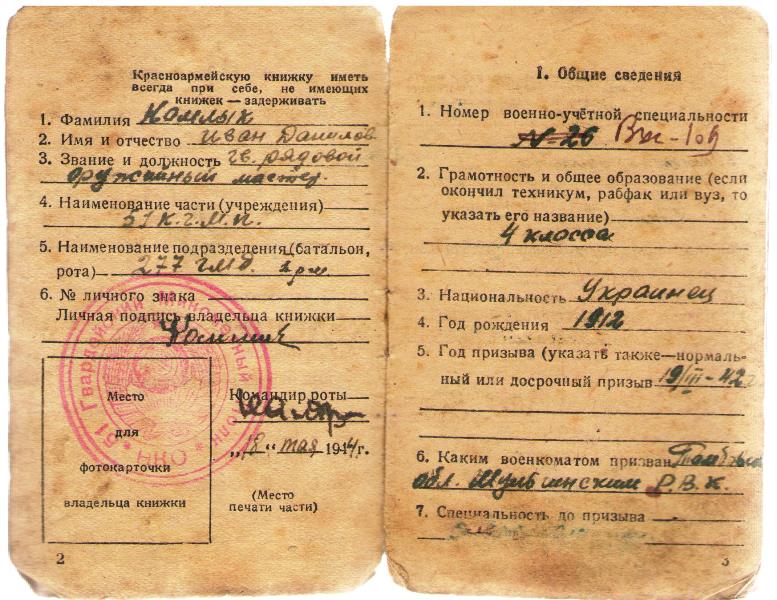 Красноармейскую книжку иметь
всегда при себе, не имеющих
книжек — задерживать
1. Фамилия Комлык
2. Имя и отчество Иван Данилов
3. Звание и должность гв. рядовой
оружейный мастер
4. Наименование части (учреждения)
51 к.г.м.п.
5. Наименование подразделения (батальон,
рота) 277 гмд.
6. № личного знака
Личная подпись владельца книжки
Место
для
фотокарточки
владельца книжки
Командир роты
„18“ мая 1944г.
(Место
печати части)
51 Гвардейский Минометный Полк * НКО *
2
I. Общие сведения
1. Номер военно-учётной специальности
№-26
2. Грамотность и общее образование (если
окончил техникум, рабфак или вуз, то
указать его название)
4 класса
3. Национальность Украинец
4. Год рождения 1912
5. Год призыва (указать также—нормаль-
ный или досрочный призыв 19/III-42г
6. Каким военкоматом призван
обл. Р.В.К.
7. Специальность до призыва
3